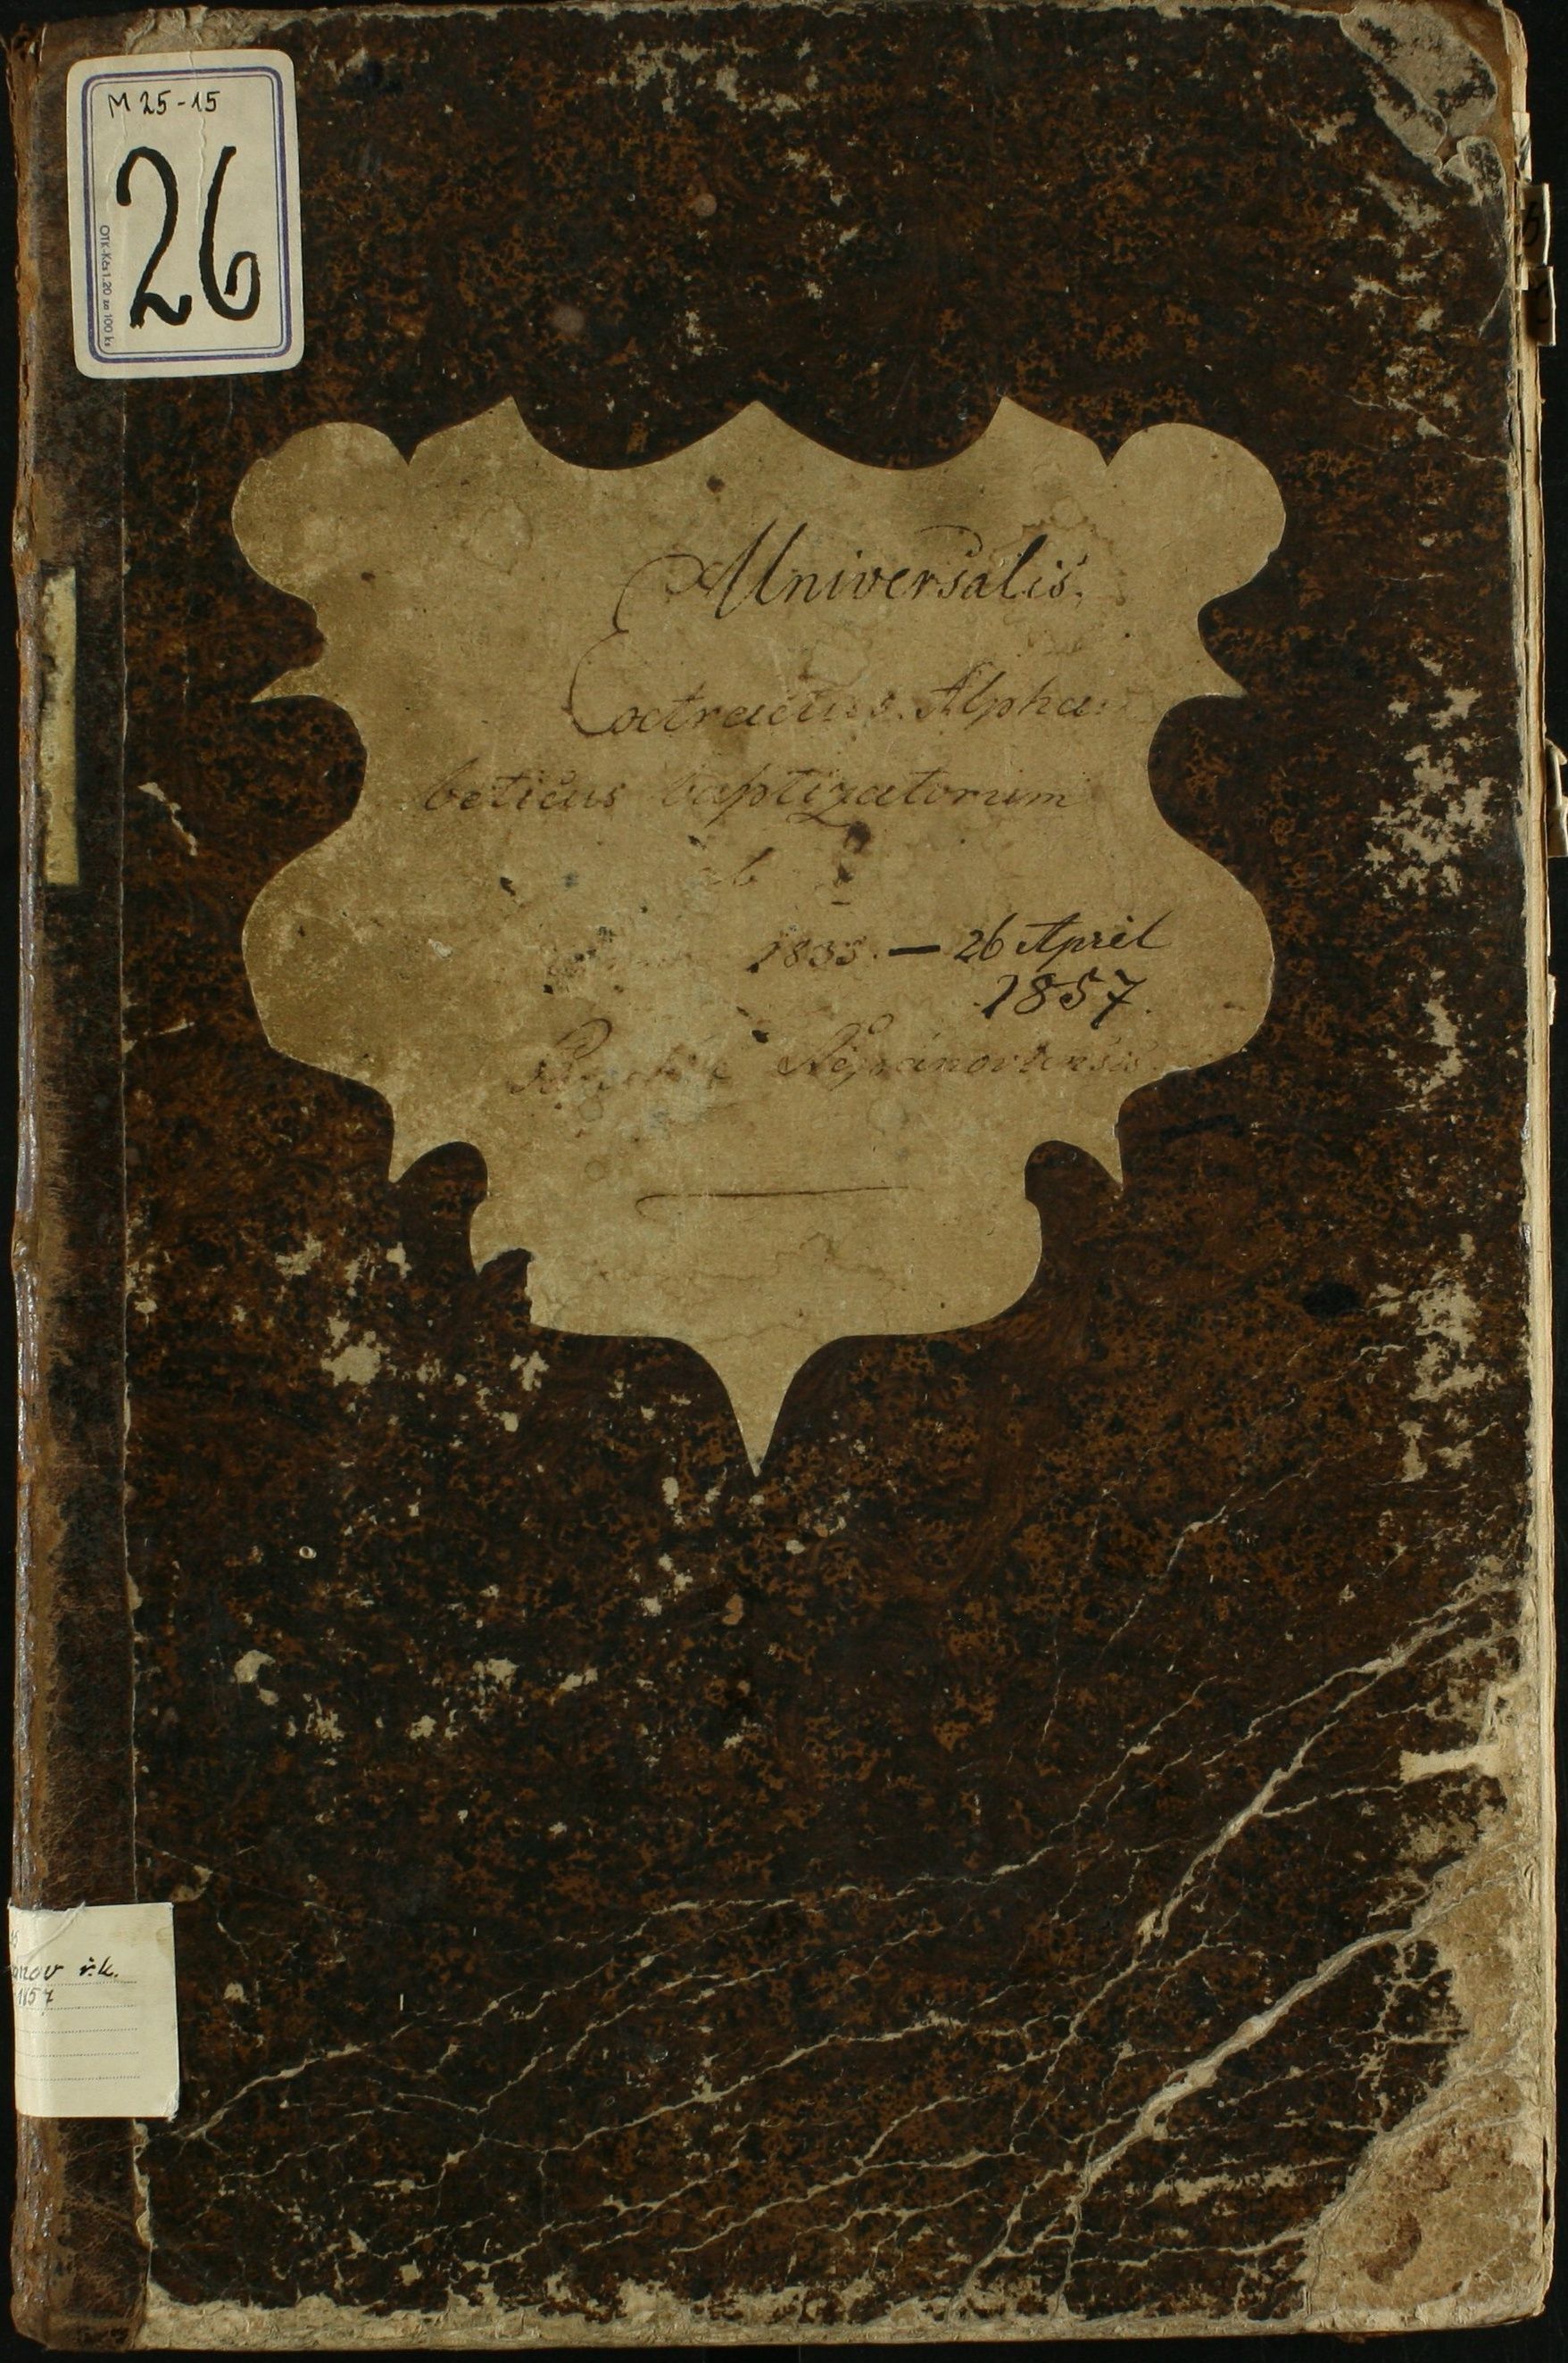 M 25-15
26
OTK-Kčs 1.20 za 100 ks
Universalis.
Extractus Alpha:
beticus baptizatorum
ab
1835. — 26 April
1857.
nov r.k.
1857